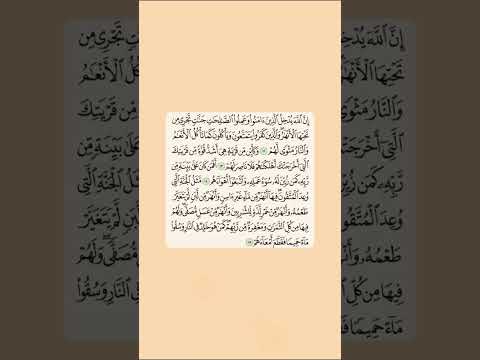 إِنَّ ٱللَّهَ يُدۡخِلُ ٱلَّذِينَ ءَامَنُواْ وَعَمِلُواْ ٱلصَّٰلِحَٰتِ جَنَّٰتٖ تَجۡرِي مِن
تَحۡتِهَا ٱلۡأَنۡهَٰرُۖ وَٱلَّذِينَ كَفَرُواْ يَتَمَتَّعُونَ وَيَأۡكُلُونَ كَمَا تَأۡكُلُ ٱلۡأَنۡعَٰمُ
وَٱلنَّارُ مَثۡوٗى لَّهُمۡ ١٢ وَكَأَيِّن مِّن قَرۡيَةٍ هِيَ أَشَدُّ قُوَّةٗ مِّن قَرۡيَتِكَ
ٱلَّتِيٓ أَخۡرَجَتۡكَ أَهۡلَكۡنَٰهُمۡ فَلَا نَاصِرَ لَهُمۡ ١٣ أَفَمَن كَانَ عَلَىٰ بَيِّنَةٖ مِّن
رَّبِّهِۦ كَمَن زُيِّنَ لَهُۥ سُوٓءُ عَمَلِهِۦ وَٱتَّبَعُوٓاْ أَهۡوَآءَهُم ١٤ مَّثَلُ ٱلۡجَنَّةِ ٱلَّتِي
وُعِدَ ٱلۡمُتَّقُونَۖ فِيهَآ أَنۡهَٰرٞ مِّن مَّآءٍ غَيۡرِ ءَاسِنٖ وَأَنۡهَٰرٞ مِّن لَّبَنٖ لَّمۡ يَتَغَيَّرۡ
طَعۡمُهُۥ وَأَنۡهَٰرٞ مِّنۡ خَمۡرٖ لَّذَّةٖ لِّلشَّٰرِبِينَ وَأَنۡهَٰرٞ مِّنۡ عَسَلٖ مُّصَفّٗىۖ وَلَهُمۡ
فِيهَا مِن كُلِّ ٱلثَّمَرَٰتِ وَمَغۡفِرَةٞ مِّن رَّبِّهِمۡۖ كَمَنۡ هُوَ خَٰلِدٞ فِي ٱلنَّارِ وَسُقُواْ
مَآءً حَمِيمٗا فَقَطَّعَ أَمۡعَآءَهُمۡ ١٥